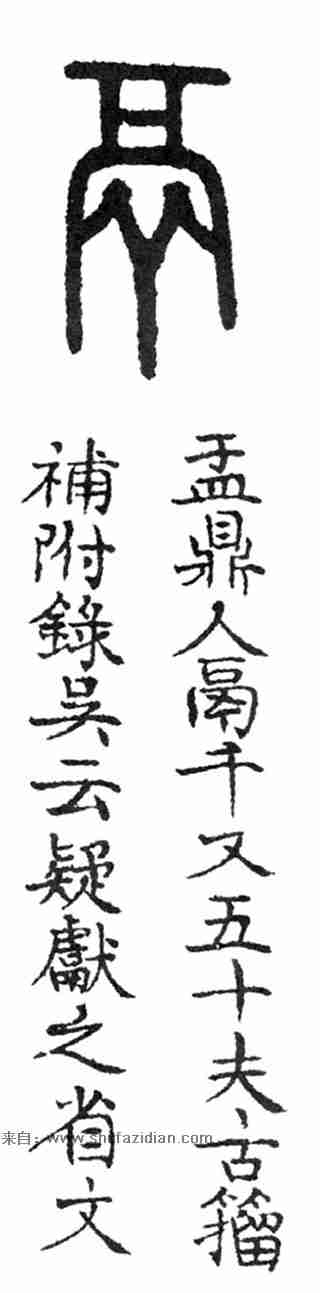 鬲
盂鼎人鬲千又五十夫古籀
補附錄吳云疑獻之省文
来自：www.shufazidian.com